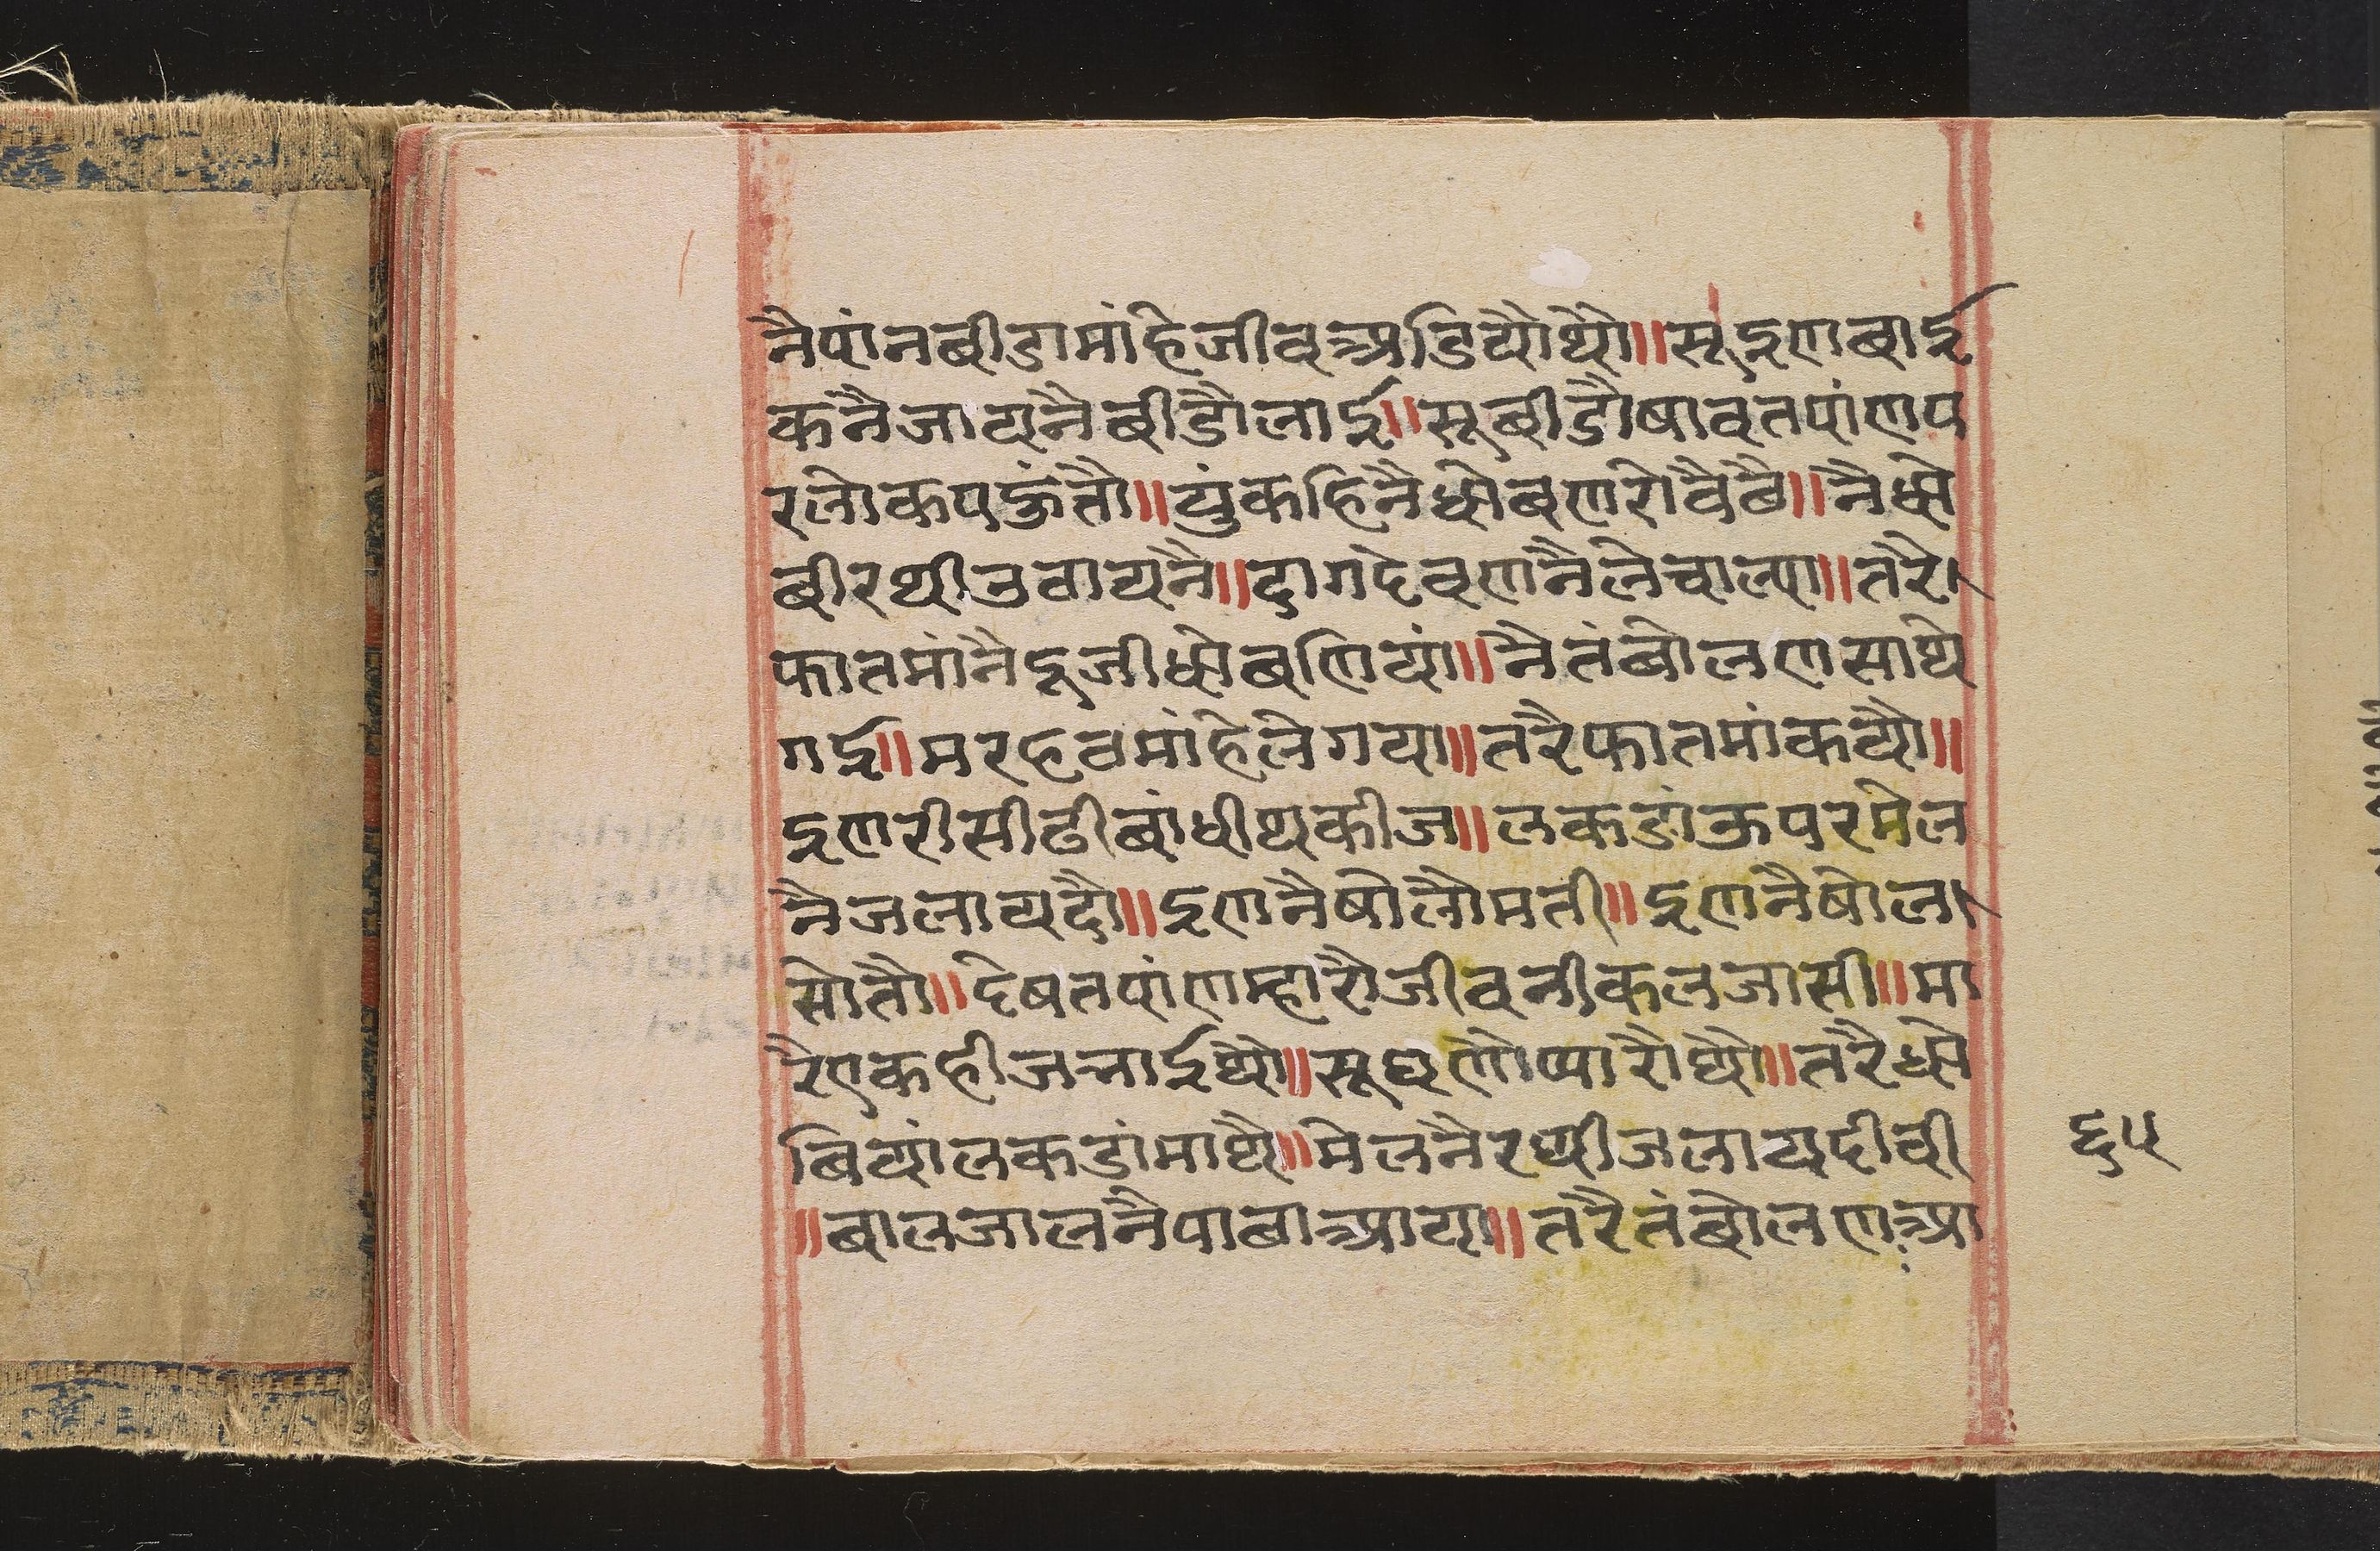 नैपांनबीडामांहेजीवअडियौथौ॥सूइणबाई
कनैजायनैबीडौलाई॥सूबीडौषावतपांणप
रलोकपऊंतौ॥युंकहिनैधोबणरोवैबै॥नैधो
बीरथीनुवायनै॥दागदेवणनैलेचाल्या॥तरै।
फातमांनैदूजीधोबणियां॥नैतंबोलणसाथे
गई॥मरहवमांहेलेगया॥तरैफातमांकयौ॥
इणरीसीढीबांधीथकीज॥लकडांऊपरमेल
नैजलायदौ॥इणनैषोलौमती॥इणनैषोल।
सोतौ॥देषतपांणम्हारौजीवनीकलजासी॥मा
रैएकहीजनाईथौ॥सूघणोप्यारौथौ॥तरैधो
बियांलकडांमाथै॥मेलनैरथीजलायदीवी
॥बालजालनैपाबाआया॥तरैतंबोलणआ
६५